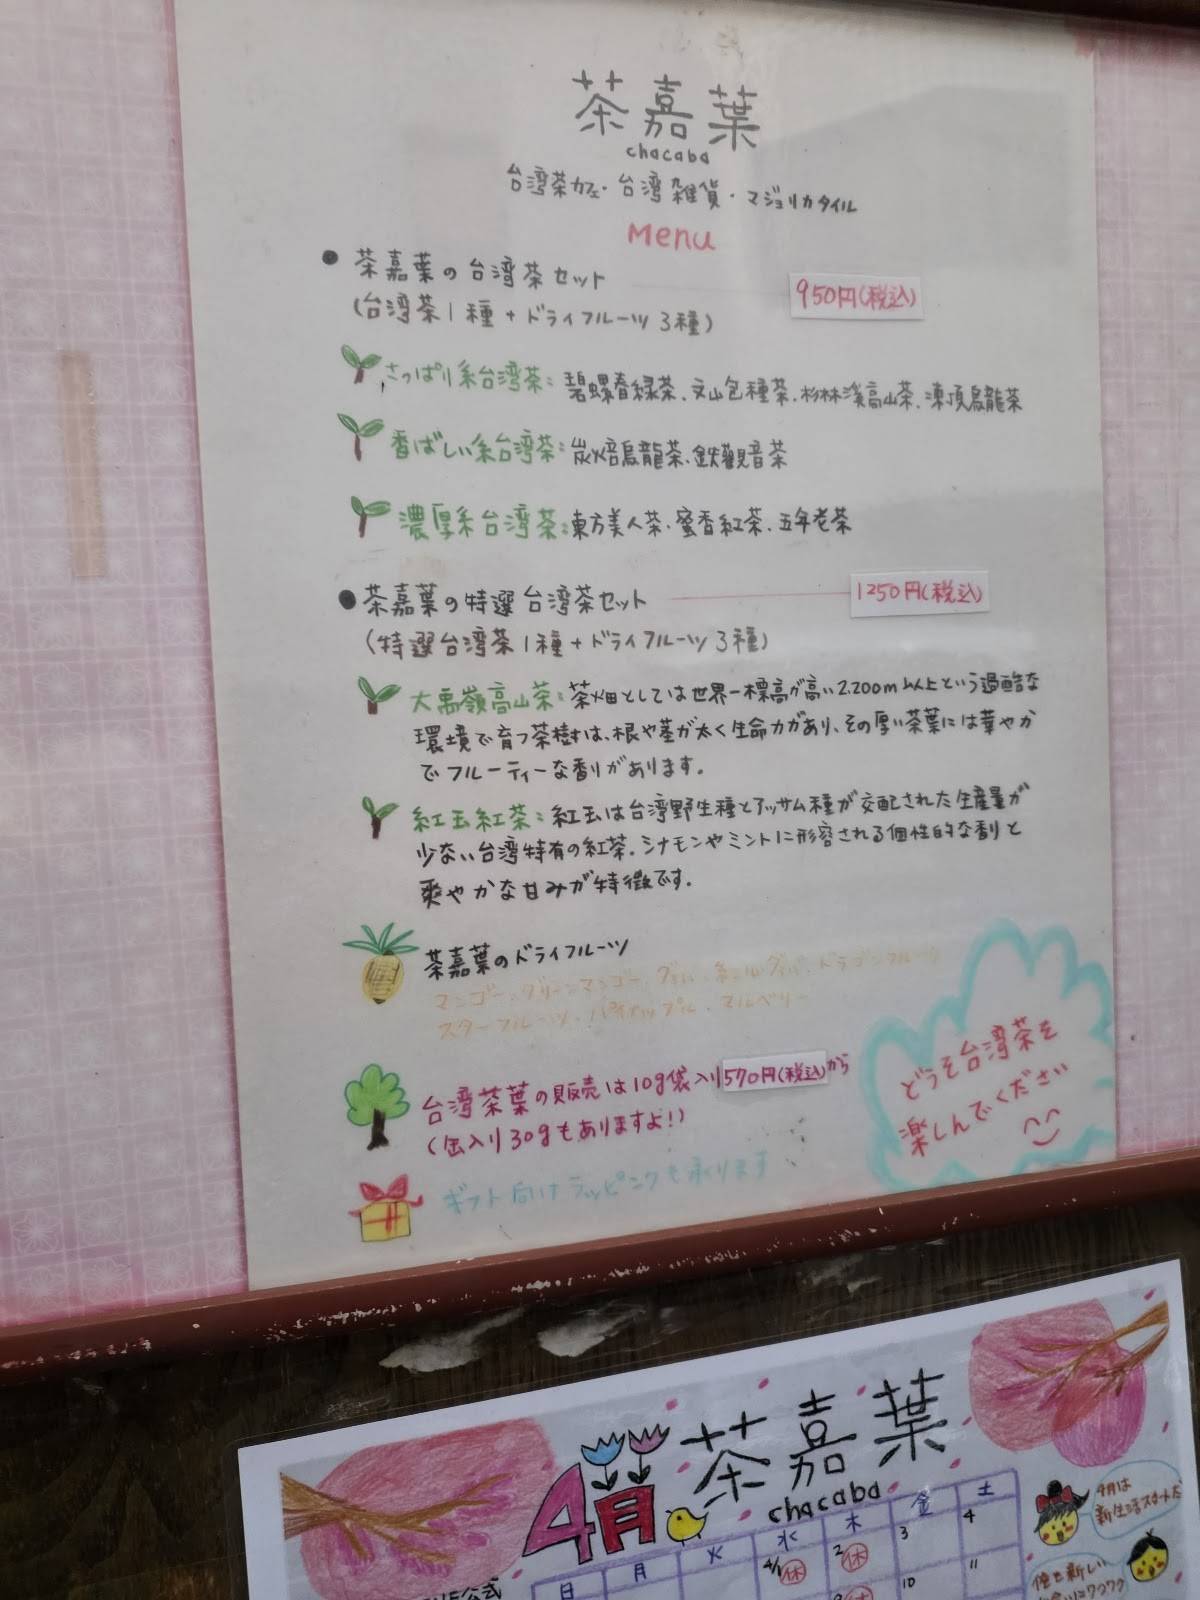 茶嘉葉
chacaba
台湾茶カフェ・台湾雑貨・マジョリカタイル
Menu
● 茶嘉葉の台湾茶セット 950円(税込)
(台湾茶1種+ドライフルーツ3種)
さっぱり系台湾茶:碧螺春緑茶、文山包種茶、杉林渓高山茶、凍頂烏龍茶
香ばしい系台湾茶:炭焙烏龍茶、鉄觀音茶
濃厚系台湾茶:東方美人茶、蜜香紅茶、五年老茶
● 茶嘉葉の特選台湾茶セット 1250円(税込)
(特選台湾茶1種+ドライフルーツ3種)
大禹嶺高山茶:茶畑としては世界一標高が高い2.200m以上という過酷な
環境で育つ茶樹は、根や茎が太く生命力があり、その厚い茶葉には華やか
でフルーティーな香りがあります。
紅玉紅茶:紅玉は台湾野生種とアッサム種が交配された生産量が
少ない台湾特有の紅茶。シナモンやミントに形容される個性的な香りと
爽やかな甘みが特徴です。
茶嘉葉のドライフルーツ
マンゴー・グリーンマンゴー・グァバ・紅心グァバ・ドラゴンフルーツ
スターフルーツ・パイナップル・マルベリー
台湾茶葉の販売は10g袋入り570円(税込)から
(缶入り30gもありますよ!)
ギフト向けラッピングも承ります
どうぞ台湾茶を
楽しんでください
4月 茶嘉葉
chacaba
日 月 火 水 木 金 土
4/1 休 2 休 3 4
9 休 10 11
4月は
新生活スタートだ
俺も新しい